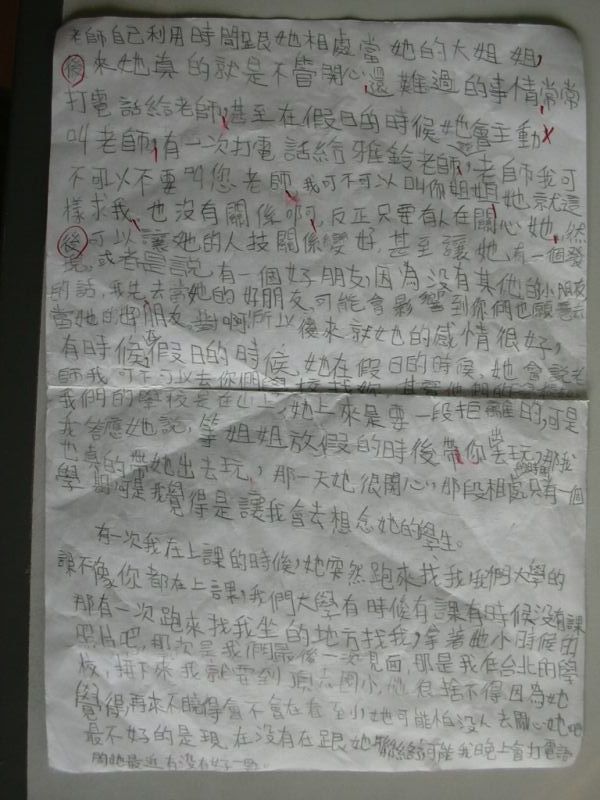 老師自己利用時間跟她相處當她的大姐姐,
後來她真的就是不管開心還難過的事情,常常
打電話給老師,甚至在假日的時候她會主動
叫老師,有一次打電話給雅鈴老師,老師我可
不可以不要叫您老師,我可不可以叫你姐姐,她就這
樣求我,也沒有關係啊,反正只要有人在關心她,然
後可以讓她的人技關係變好,甚至讓她,有一個發
或者是說有一個好朋友因為沒有其他的小朋友
的話,我先去當她的好朋友可能會影響到你們也願意去
當她的好朋友對啊!所以後來就她的感情很好,
有時候假日的時候,她在假日的時候,她會說老
師我可不可以去你們學校找妳,
我們的學校是在山上,她上來是要一段距離的,可是
我答應她說,等姐姐放假的時後帶你去玩,那我
也真的帶她出去玩,那一天她很開心,那段相處只有一個
學期可是我覺得是讓我會去想念她的學生。
有一次我在上課的時候,她突然跑來找我我們大學的
課不像你都在上課,我們大學有時候有課有時候沒有課
那有一次跑來找我坐的地方找我,拿著她小時候的
照片吧,那次是我們最後一次見面,那是我在台北的學
校,接下來我就要到國小,她很捨不得因為她
覺得再來不曉得會不會在看到她可能怕沒人去關心她吧
最不好的是現在沒有在跟她聯絡可能我晚上會打電話
問她最近有沒有好一點。